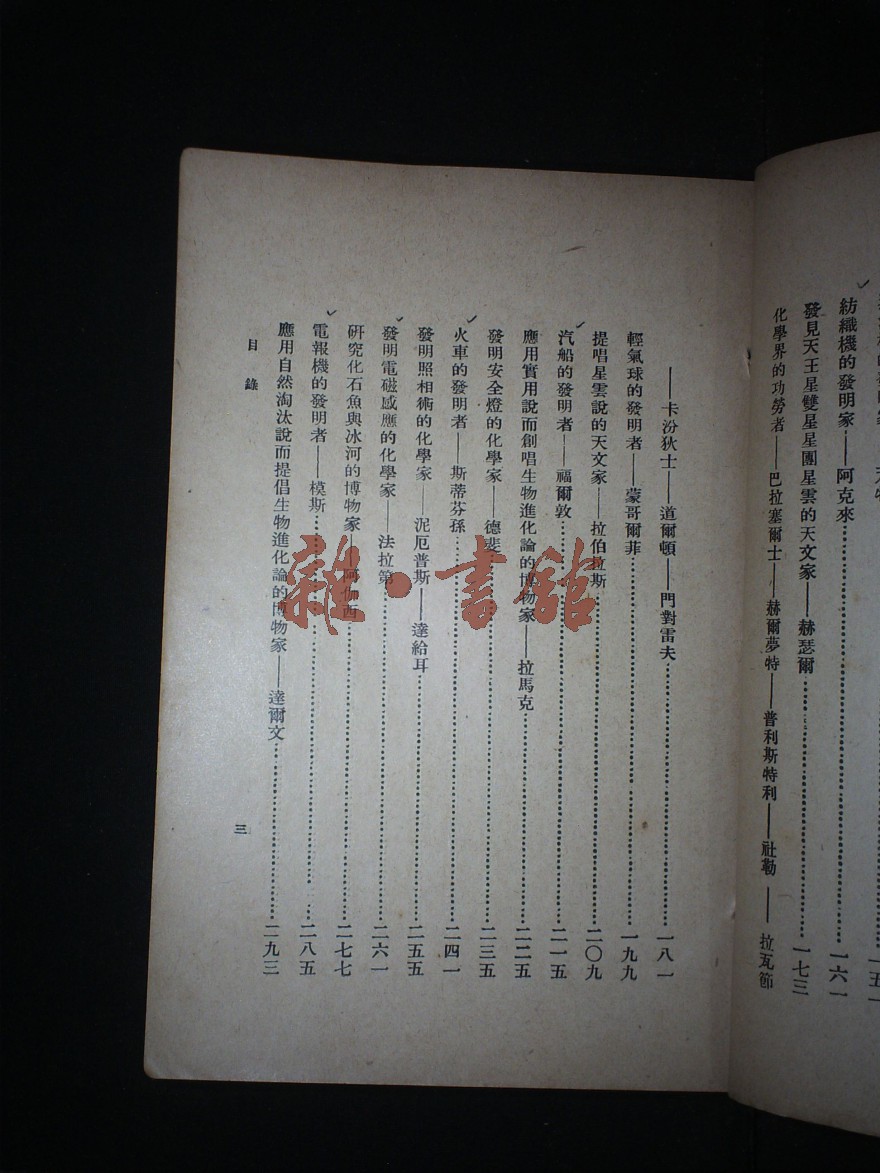 一五一
紡織機的發明家——阿克來…………一六一
發見天王星雙星星團星雲的天文家——赫瑟爾…………一七三
化學界的功勞者——巴拉塞爾士——赫爾夢特——普利斯特利——社勒——拉瓦節
——卡汾狄士——道爾頓——門對雷夫…………一八一
輕氣球的發明者——蒙哥爾菲…………一九九
提唱星雲說的天文家——拉伯拉斯…………二〇九
汽船的發明者——福爾敦…………二一五
應用實用說而創唱生物進化論的博物家——拉馬克…………二二五
發明安全燈的化學家——德斐…………二三五
火車的發明者——斯蒂芬孫…………二四一
發明照相術的化學家——泥厄普斯——達給耳…………二五五
發明電磁感應的化學家——法拉第…………二六一
研究化石魚與冰河的博物家——阿伽西…………二七七
電報機的發明者——模斯…………二八五
應用自然淘汰說而提倡生物進化論的博物家——達爾文…………二九三
目錄
三
雜·書館